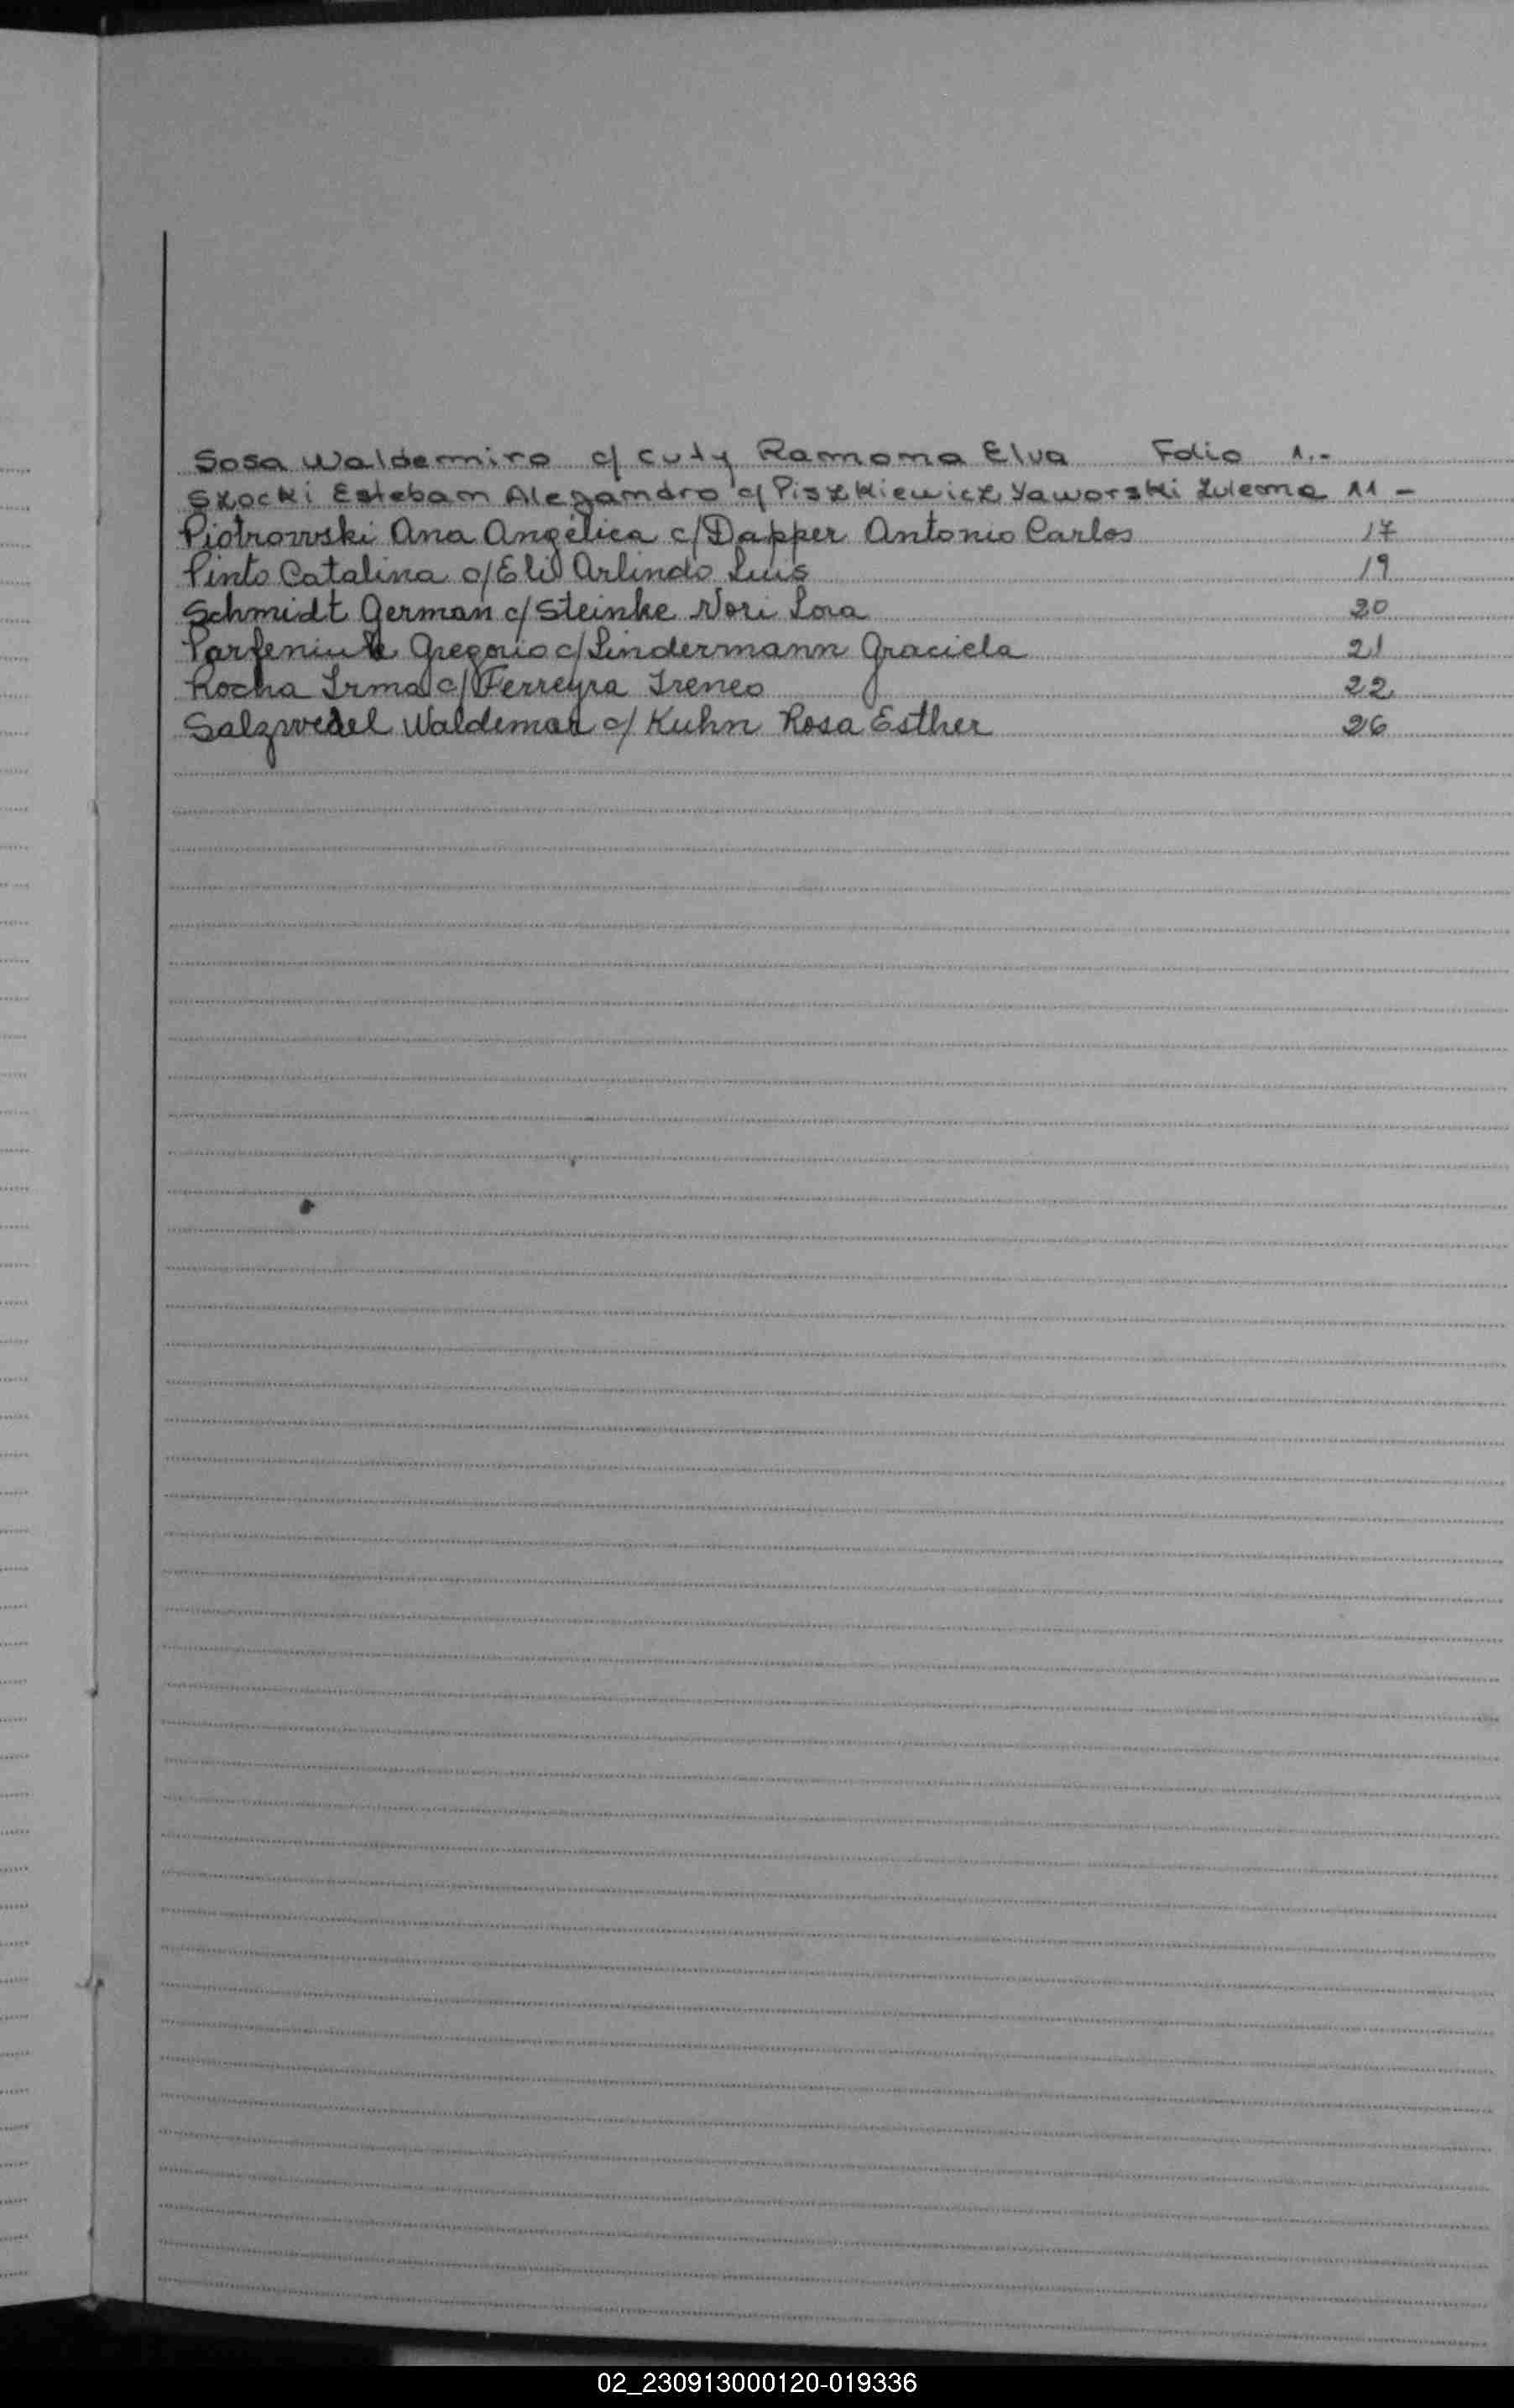 Sosa Waldemiro c/ Cuty Ramona Elva Folio 1.-
Skocki Esteban Alejandro c/ Piszkiewicz Yaworski Zulema 11 -
Piotrowski Ana Angélica c/ Dapper Antonio Carlos 17
Pinto Catalina c/ Eli Arlindo Luis 19
Schmidt German c/ Steinke Nori Lora 20
Parfeniuk Gregorio c/ Lindermann Graciela 21
Rocha Irma c/ Ferreyra Ireneo 22
Salzwedel Waldemar c/ Kuhn Rosa Esther 26
02_230913000120-019336